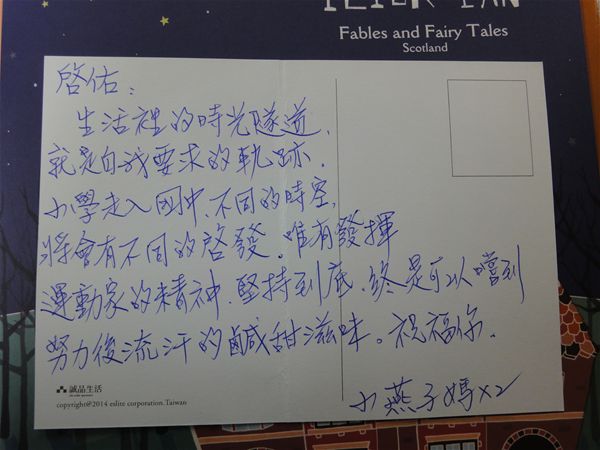 PETER PAN
Fables and Fairy Tales
Scotland
啓佑：
生活裡的時光隧道，
就是自我要求的軌跡．
小學走入國中、不同的時空，
將會有不同的啓發．唯有發揮
運動家的精神．堅持到底．終是可以嚐到
努力後流汗的鹹甜滋味。祝福你．
小燕子媽x2
誠品生活
copyright@2014 eslite corporation.Taiwan